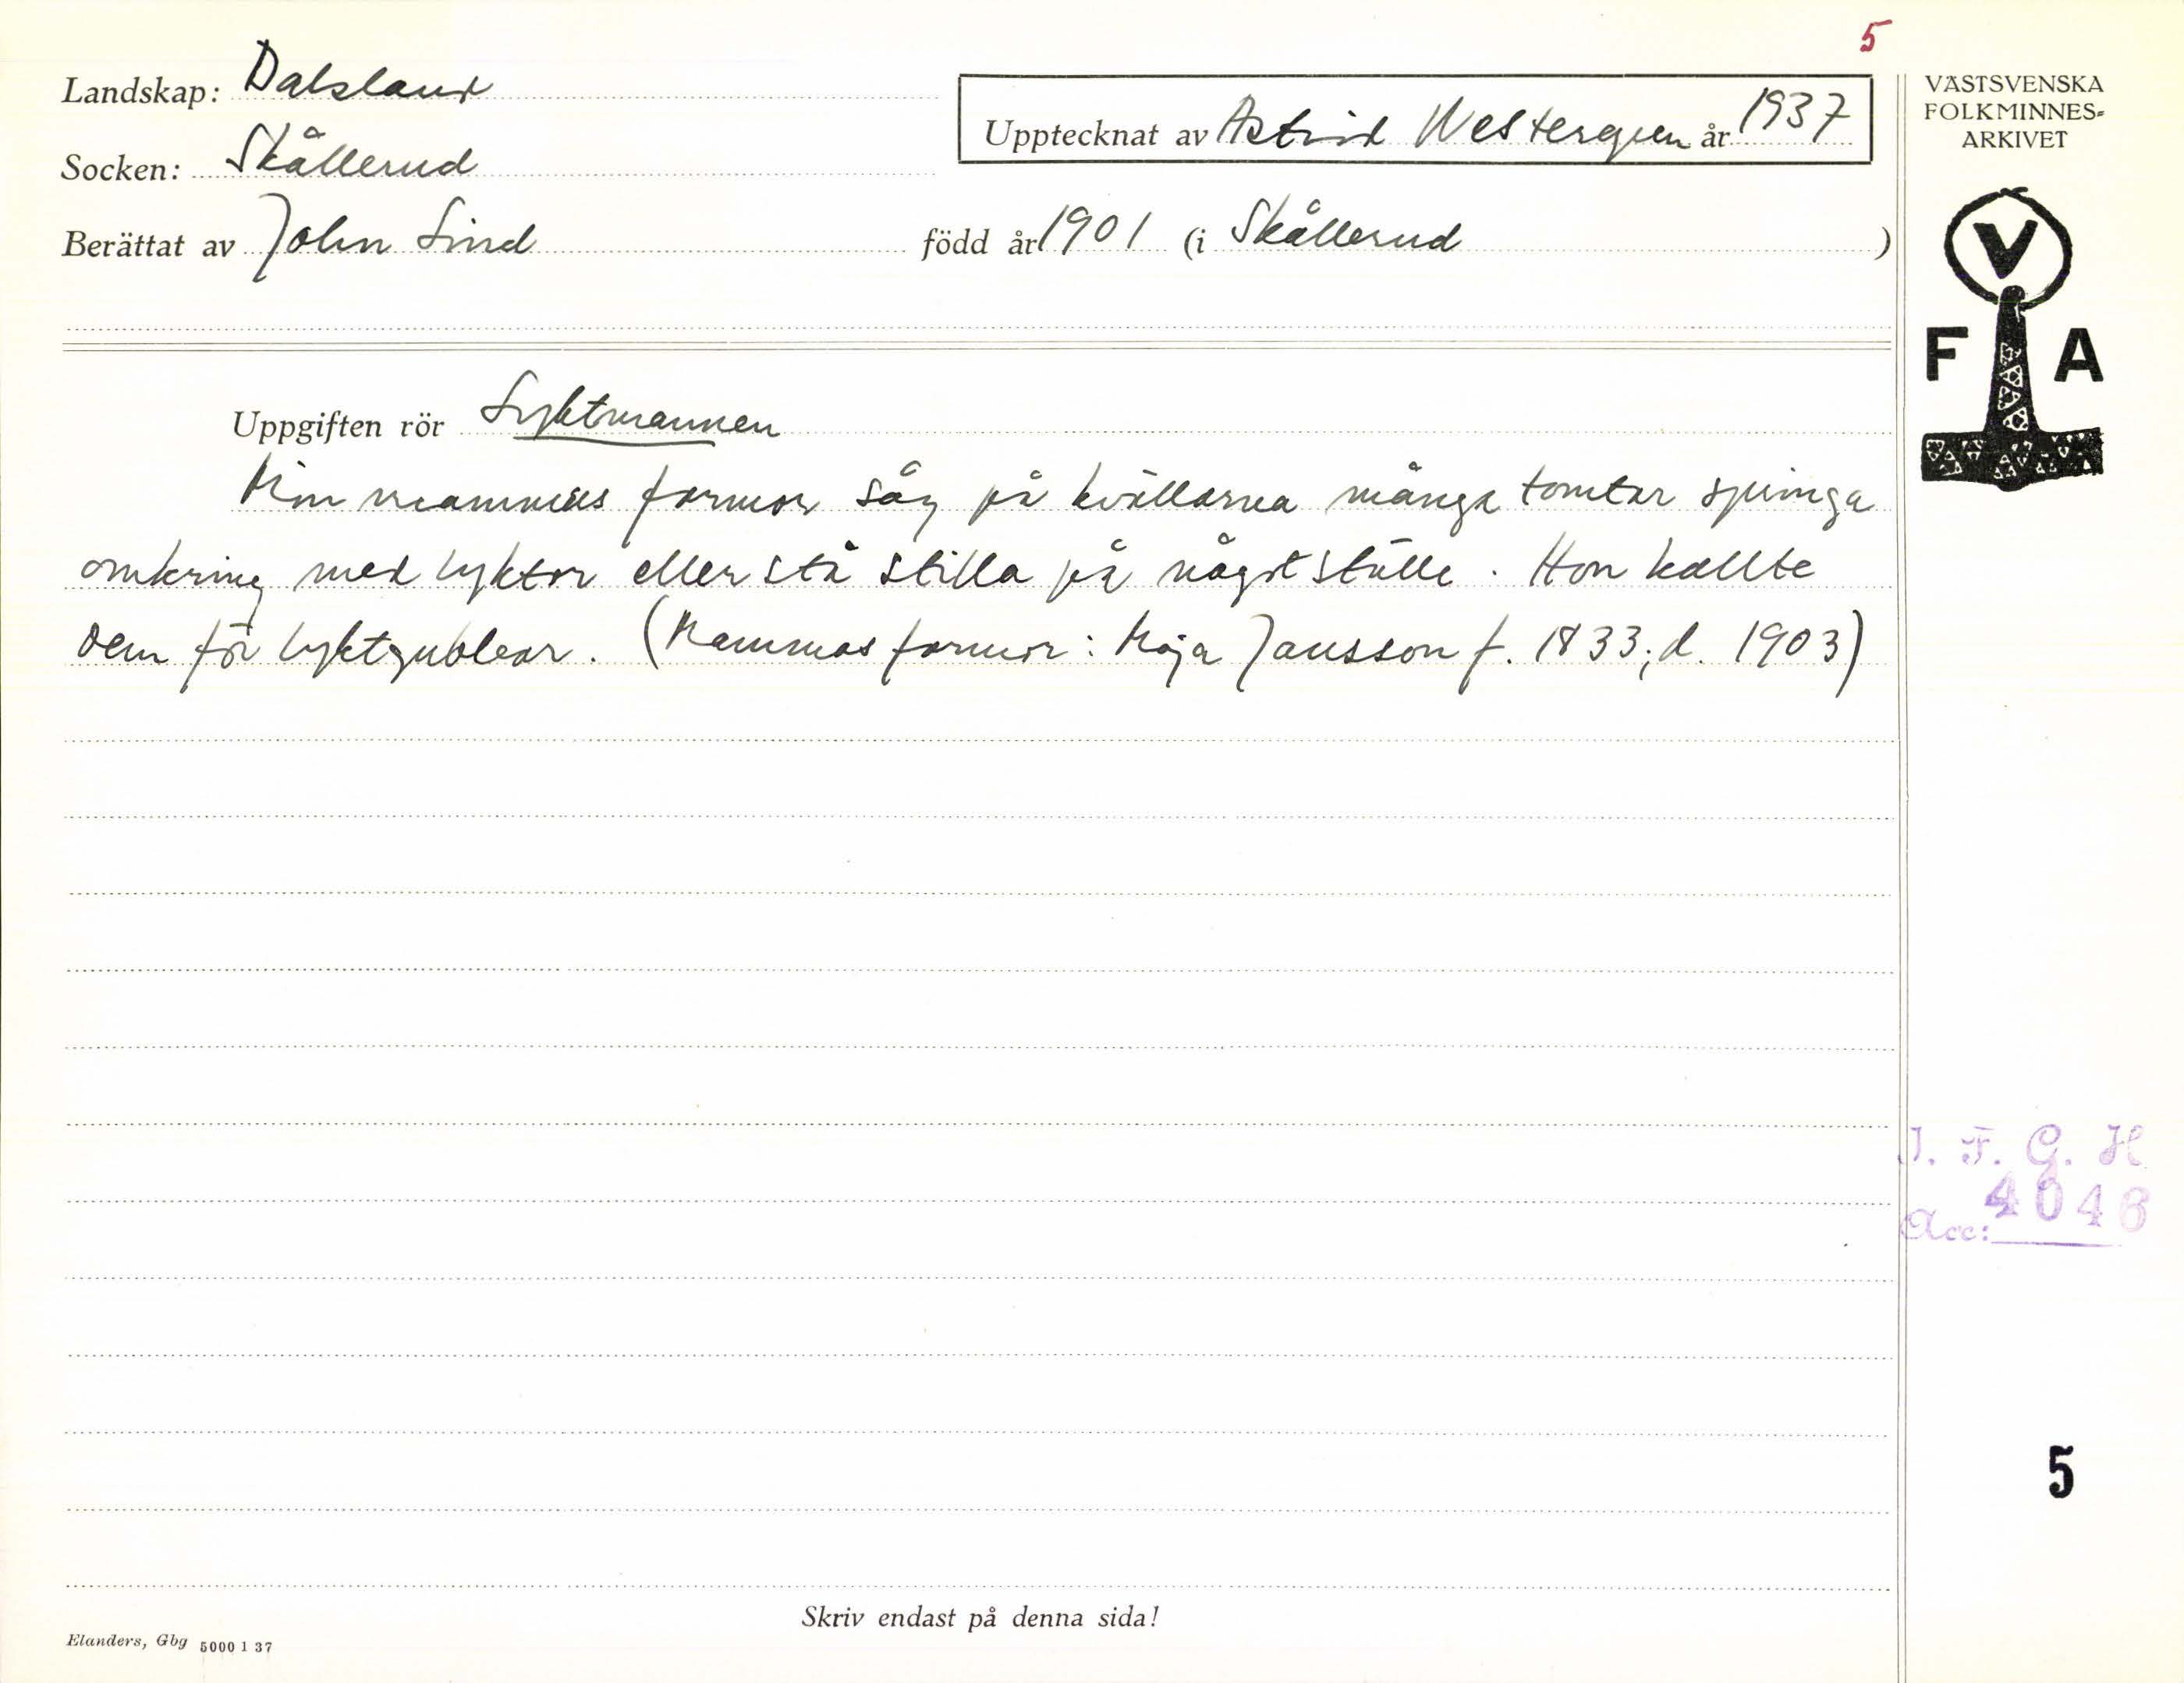 5
Landskap: Dalsland
Upptecknat av Astrid Westergren år 1937
Socken: Skållerud
Berättat av John Lind född år 1901 (i Skållerud )
VÄSTSVENSKA
FOLKMINNES=
ARKIVET
V
F A
Uppgiften rör Lyktmannen
Min mammas farmor såg på kvällarna många tomtar springa
omkring med lyktor eller stå stilla på något ställe. Hon kallte
dem för lyktgubbar. (Mammas farmor: Maja Jansson f. 1833; d. 1903)
I. F. G. H
Acc: 4046
5
Skriv endast på denna sida!
Elanders, Gbg 5000 1 37